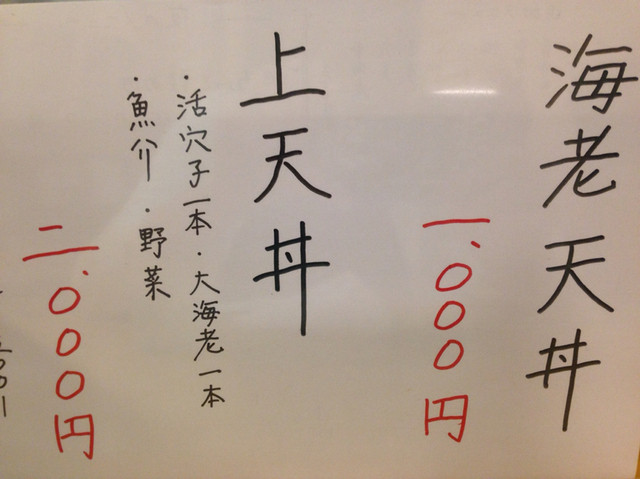 海老天丼
一、〇〇〇円
上天丼
・活穴子一本・大海老一本
・魚介・野菜
二、〇〇〇円